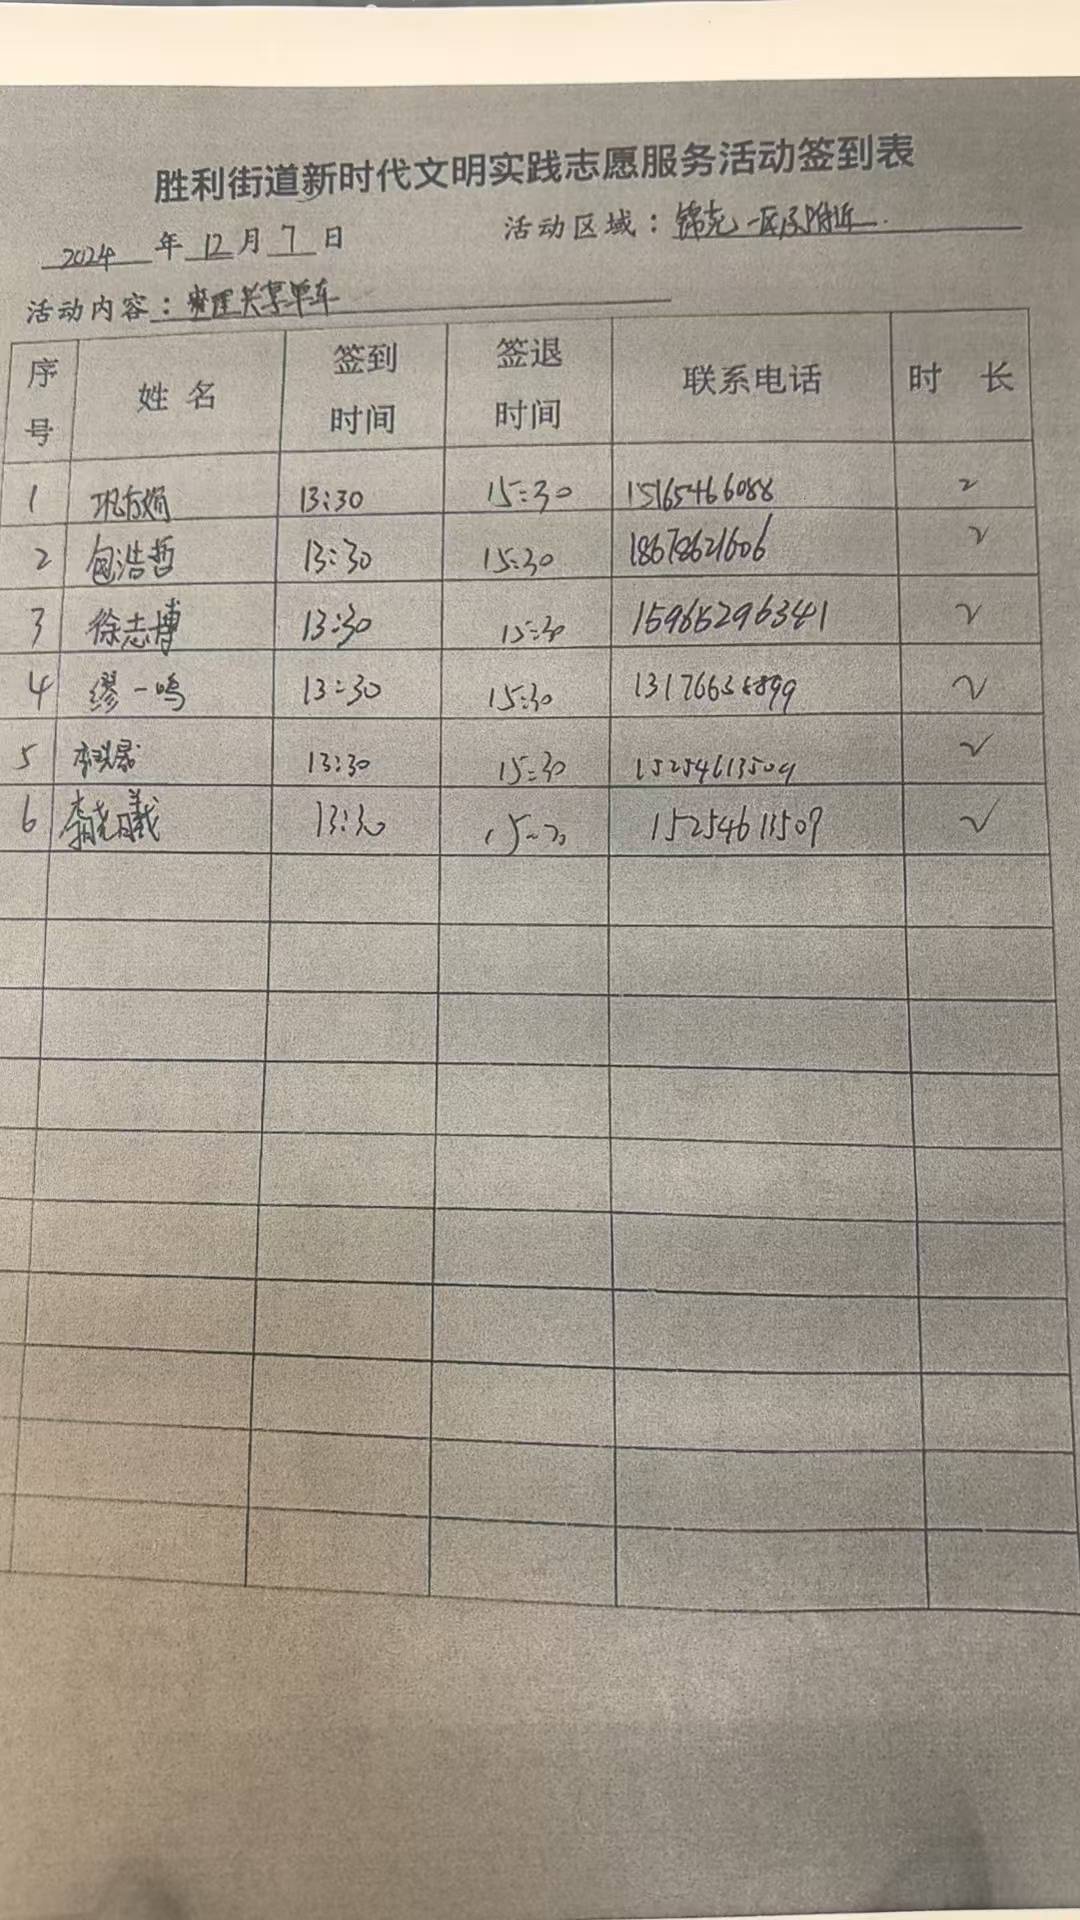 胜利街道新时代文明实践志愿服务活动签到表
2024 年 12 月 7 日 活动区域：锦苑一区及附近.
活动内容：整理共享单车
序号 姓名 签到时间 签退时间 联系电话 时 长
1 巩友娟 13:30 15:30 15165466088 2
2 包浩哲 13:30 15:30 18678621606 2
3 徐志博 13:30 15:30 15965296341 2
4 缪一鸣 13:30 15:30 2
5 13:30 15:30 15254613509 2
6 李曦 13:30 15:30 15254613509 2